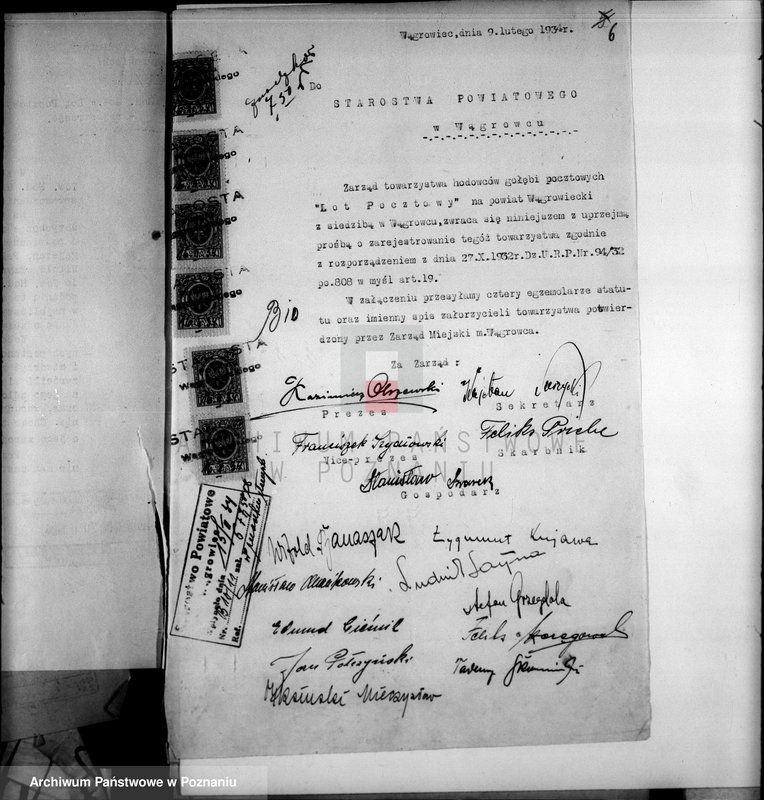 Wągrowiec,dnia 9.lutego 1934r.
6
7,50
Do
STAROSTWA POWIATOWEGO
w Wągrowcu
Zarząd towarzystwa hodowców gołębi pocztowych
"Lot Pocztowy" na powiat Wągrowiecki
z siedzibą w Wągrowcu,zwraca się niniejszem z uprzejmą
prośbą o zarejestrowanie tegóż towarzystwa zgodnie
z rozporządzeniem z dnia 27.X.1932r.Dz.U.R.P.Nr.94/32
po.808 w myśl art.19.
W załączeniu przesyłamy cztery egzemolarze statu-
tu oraz imienny spis założycieli towarzystwa potwier-
dzony przez Zarząd Miejski m.Wągrowca.
Za Zarząd :
Kazimierz Olszewski
Prezes
Sekretarz
Franciszek
Vice-prezes
Feliks
Skarbnik
Stanisław
Gospodarz
Witold Janaszak
Zygmunt Kujawa
Stanisław
Ludwik
Edmund
Feliks
Jan Połczyński
Mieczysław
Starostwo Powiatowe
Wągrowiec
ARCHIWUM PAŃSTWOWE
W POZNANIU
Archiwum Państwowe w Poznaniu